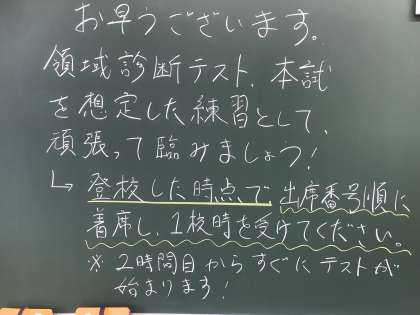 お早うございます。
領域診断テスト、本試
を想定した練習として、
頑張って臨みましょう!
↳登校した時点で出席番号順に
着席し、1校時を受けてください。
※2時間目からすぐにテストが
始まります!